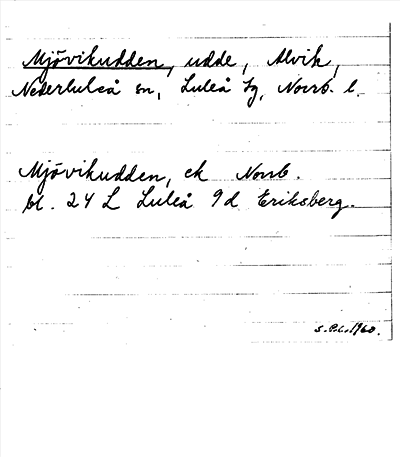 Mjövikudden, udde, Alvik,
Nederluleå sn, Luleå tg, Norrb. l.
Mjövikudden, ek Norrb.
bl. 24 L Luleå 9d Eriksberg.
1960.